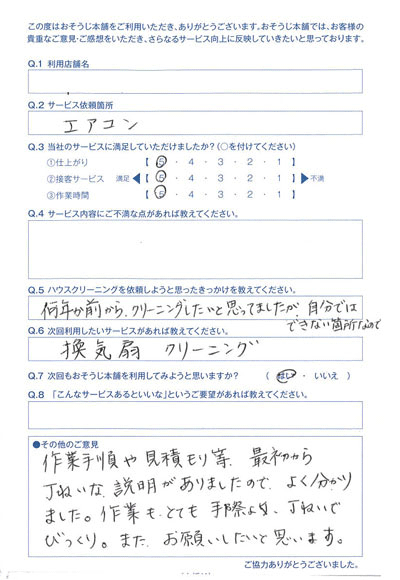 この度はおそうじ本舗をご利用いただき、ありがとうございます。おそうじ本舗では、お客様の
貴重なご意見・ご感想をいただき、さらなるサービス向上に反映していきたいと思っております。
Q.1 利用店舗名
Q.2 サービス依頼箇所
エアコン
Q.3 当社のサービスに満足していただけましたか?(○を付けてください)
①仕上がり 【 5 ・ 4 ・ 3 ・ 2 ・ 1 】
②接客サービス 満足 ◀【 5 ・ 4 ・ 3 ・ 2 ・ 1 】▶ 不満
③作業時間 【 5 ・ 4 ・ 3 ・ 2 ・ 1 】
Q.4 サービス内容にご不満な点があれば教えてください。
Q.5 ハウスクリーニングを依頼しようと思ったきっかけを教えてください。
何年か前から、クリーニングしたいと思ってましたが、自分では
できない箇所なので
Q.6 次回利用したいサービスがあれば教えてください。
換気扇 クリーニング
Q.7 次回もおそうじ本舗を利用してみようと思いますか? ( はい ・ いいえ )
Q.8 「こんなサービスあるといいな」というご要望があれば教えてください。
●その他のご意見
作業手順や見積もり等、最初から
丁ねいな説明がありましたので、よく分かり
ました。作業も、とても手際よく、丁ねいで
びっくり。また、お願いしたいと思います。
ご協力ありがとうございました。